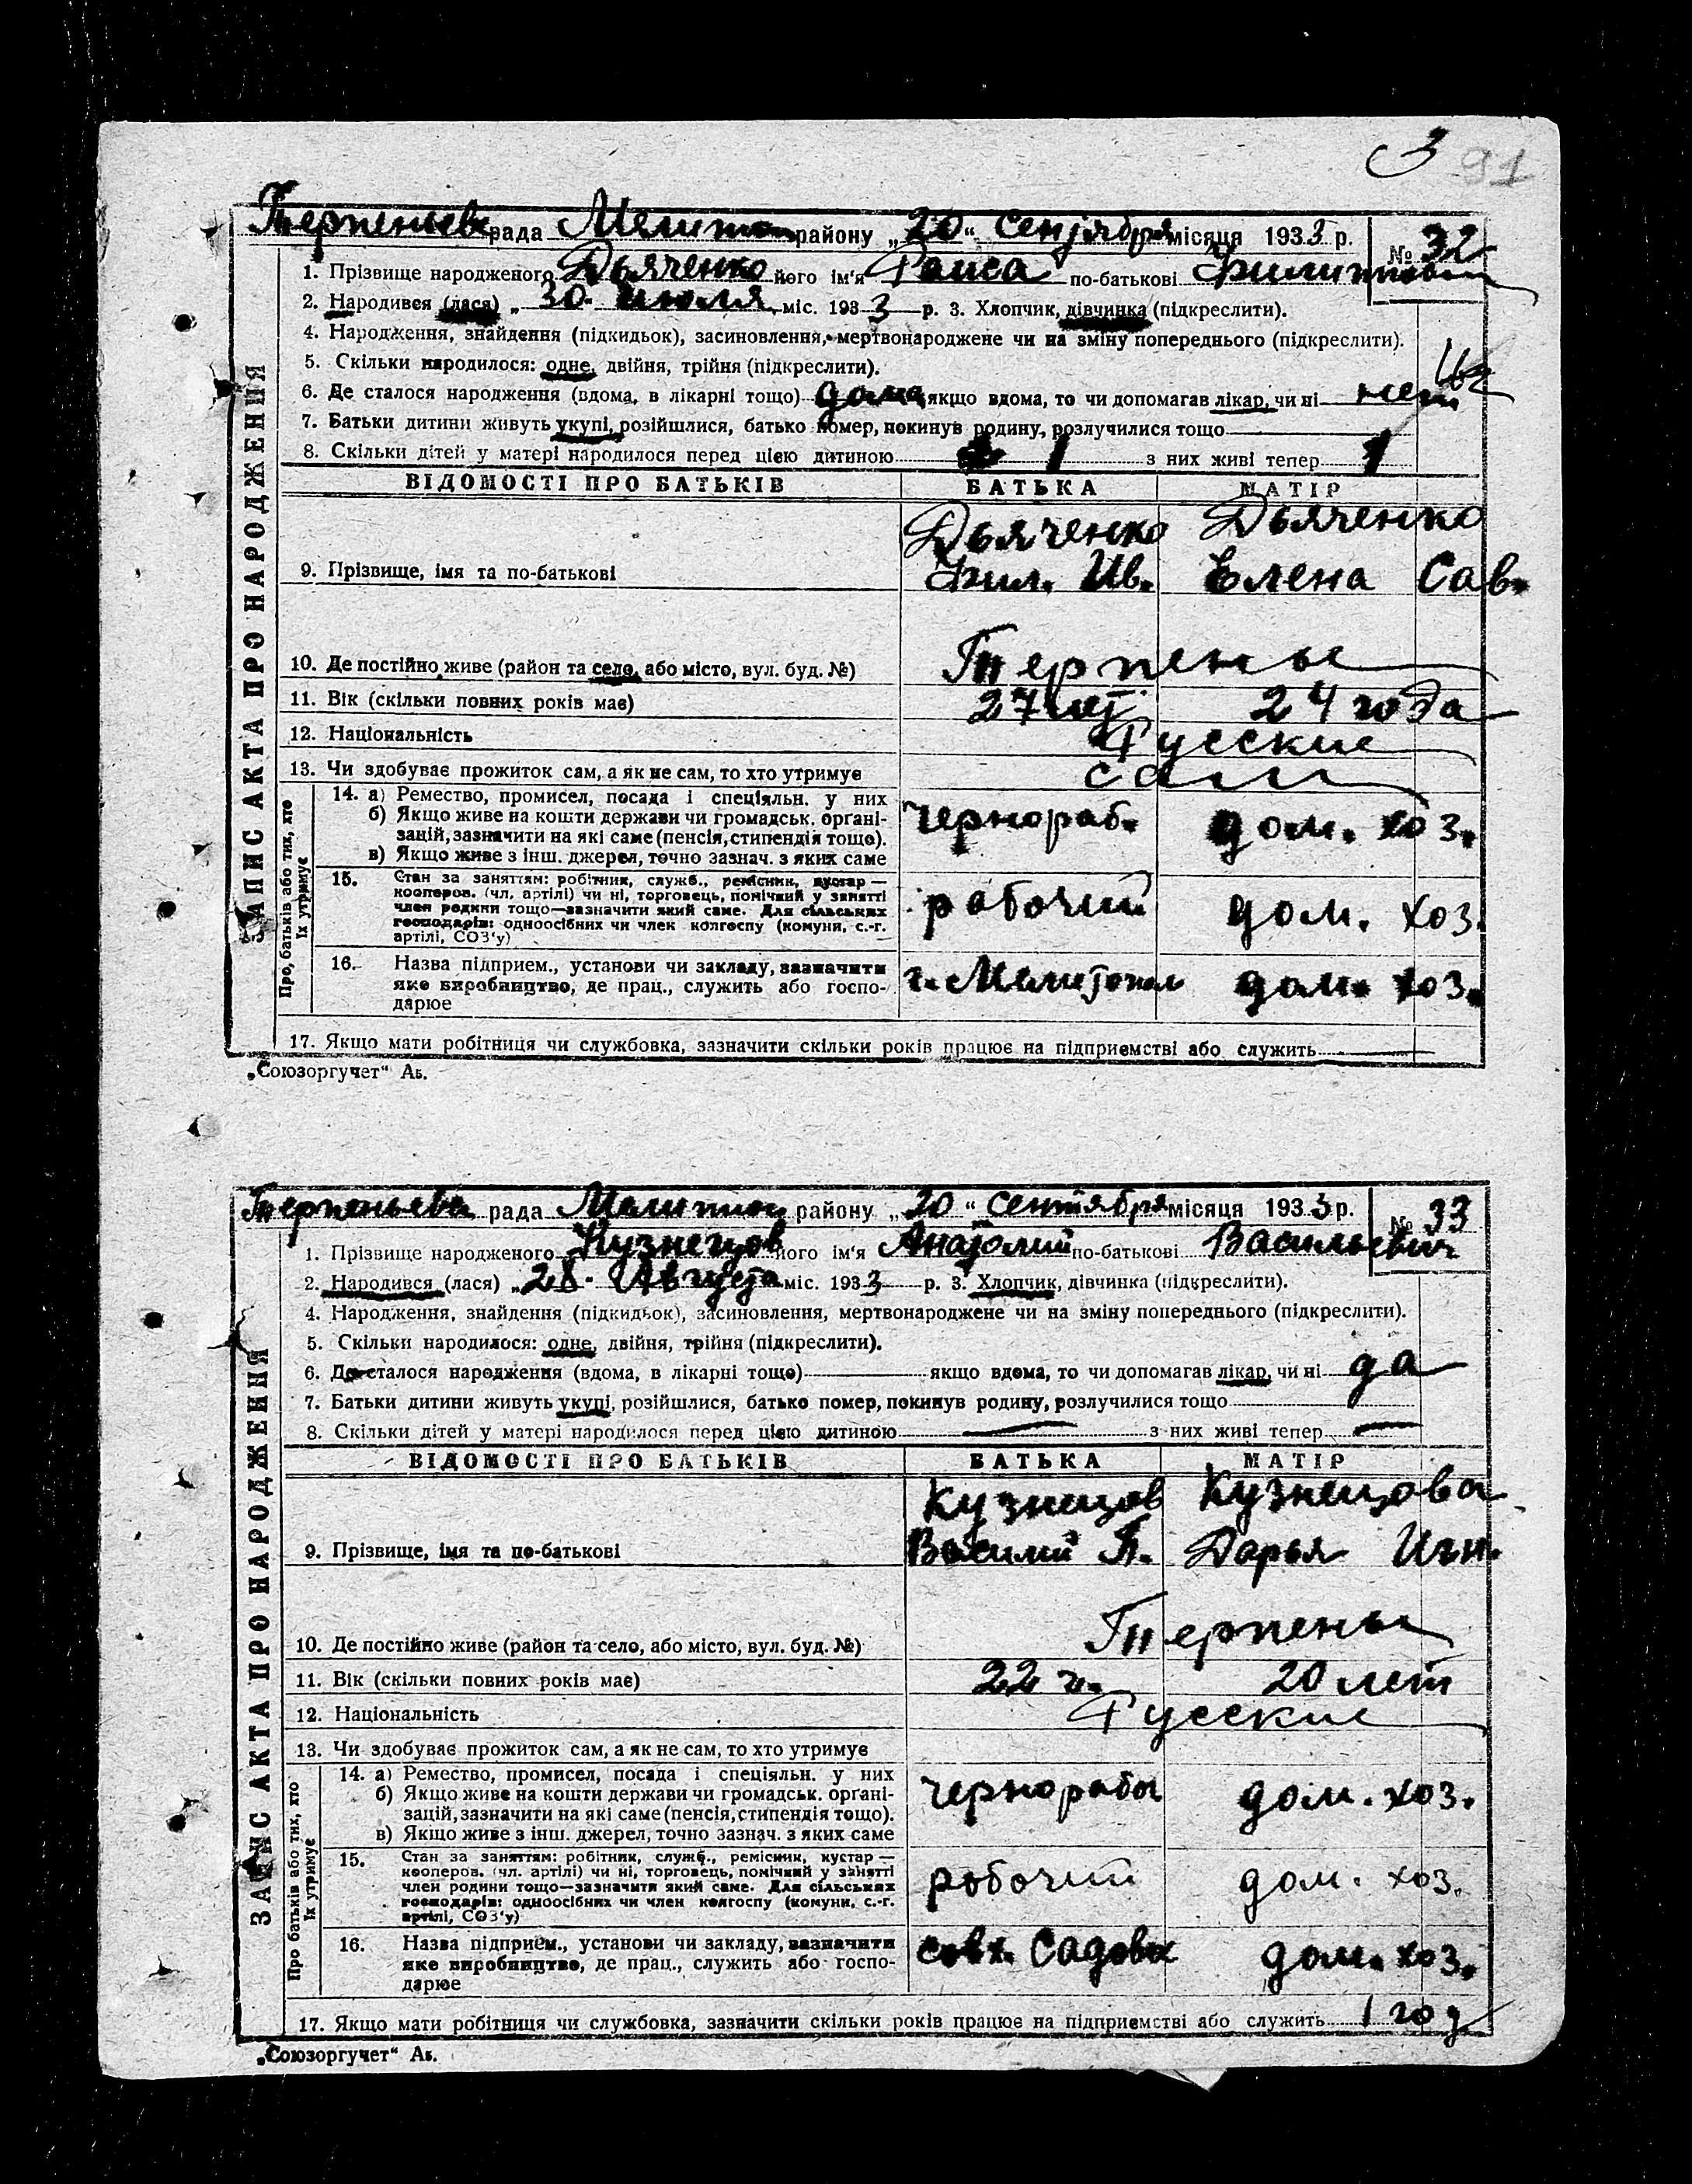 3 91
Терпеньева рада Мелитоп району „20“ Сентября місяця 1933 р. № 32
1. Прізвище народженого Дьяченко його ім'я Раиса по-батькові
2. Народився (лася) „30 июля міс. 1933 р. 3. Хлопчик, дівчинка (підкреслити).
4. Народження, знайдення (підкидьок), засиновлення, мертвонароджене чи на зміну попереднього (підкреслити).
5. Скільки народилося: одне, двійня, трійня (підкреслити).
6. Де сталося народження (вдома, в лікарні тощо) дома якщо вдома, то чи допомагав лікар, чи ні нет
7. Батьки дитини живуть укупі, розійшлися, батько помер, покинув родину, розлучилися тощо
8. Скільки дітей у матері народилося перед цією дитиною 1 з них живі тепер 1
ВІДОМОСТІ ПРО БАТЬКІВ БАТЬКА МАТІР
Дьяченко Дьяченко
9. Прізвище, імя та по-батькові Фил. Ив. Елена Сав.
10. Де постійно живе (район та село, або місто, вул. буд. №) Терпенье
11. Вік (скільки повних років має) 27 лет 24 года
12. Національність Русские
13. Чи здобуває прожиток сам, а як не сам, то хто утримує сам
14. а) Ремество, промисел, посада і спеціяльн. у них
б) Якщо живе на кошти держави чи громадськ. орґані-
зацій, зазначити на які саме (пенсія, стипендія тощо). чернораб. дом. хоз.
в) Якщо живе з інш. джерел, точно зазнач. з яких саме
15. Стан за заняттям: робітник, служб., ремісник, кустар —
кооперов. (чл. артілі) чи ні, торговець, помічний у занятті
член родини тощо—зазначити який саме. Для сільських рабочий дом. хоз.
господарів: одноосібних чи член колгоспу (комуни, с.-г.
артілі, СОЗ'у)
16. Назва підприєм., установи чи закладу, зазначити
яке виробництво, де прац., служить або госпо- г. Мелитополь дом. хоз.
дарює
17. Якщо мати робітниця чи службовка, зазначити скільки років працює на підприємстві або служить
ЗАПИС АКТА ПРО НАРОДЖЕННЯ
Про батьків або тих, хто
їх утримує
„Союзоргучет“ Аб.
Терпеньева рада Мелитоп району „20“ Сентября місяця 1933 р. № 33
1. Прізвище народженого Кузнецов його ім'я Анатолий по-батькові Васильевич
2. Народився (лася) „28 Августа міс. 1933 р. 3. Хлопчик, дівчинка (підкреслити).
4. Народження, знайдення (підкидьок), засиновлення, мертвонароджене чи на зміну попереднього (підкреслити).
5. Скільки народилося: одне, двійня, трійня (підкреслити).
6. Де сталося народження (вдома, в лікарні тощо) якщо вдома, то чи допомагав лікар, чи ні да
7. Батьки дитини живуть укупі, розійшлися, батько помер, покинув родину, розлучилися тощо
8. Скільки дітей у матері народилося перед цією дитиною — з них живі тепер —
ВІДОМОСТІ ПРО БАТЬКІВ БАТЬКА МАТІР
Кузнецов Кузнецова
9. Прізвище, імя та по-батькові Василий П. Дарья Игн.
10. Де постійно живе (район та село, або місто, вул. буд. №) Терпенье
11. Вік (скільки повних років має) 22 г. 20 лет
12. Національність Русские
13. Чи здобуває прожиток сам, а як не сам, то хто утримує
14. а) Ремество, промисел, посада і спеціяльн. у них
б) Якщо живе на кошти держави чи громадськ. орґані- чернорабы дом. хоз.
зацій, зазначити на які саме (пенсія, стипендія тощо).
в) Якщо живе з інш. джерел, точно зазнач. з яких саме
15. Стан за заняттям: робітник, служб., ремісник, кустар —
кооперов. (чл. артілі) чи ні, торговець, помічний у занятті
член родини тощо—зазначити який саме. Для сільських рабочий дом. хоз.
господарів: одноосібних чи член колгоспу (комуни, с.-г.
артілі, СОЗ'у)
16. Назва підприєм., установи чи закладу, зазначити
яке виробництво, де прац., служить або госпо- совх. Садовое дом. хоз.
дарює
17. Якщо мати робітниця чи службовка, зазначити скільки років працює на підприємстві або служить 1 год
ЗАПИС АКТА ПРО НАРОДЖЕННЯ
Про батьків або тих, хто
їх утримує
„Союзоргучет“ Аб.